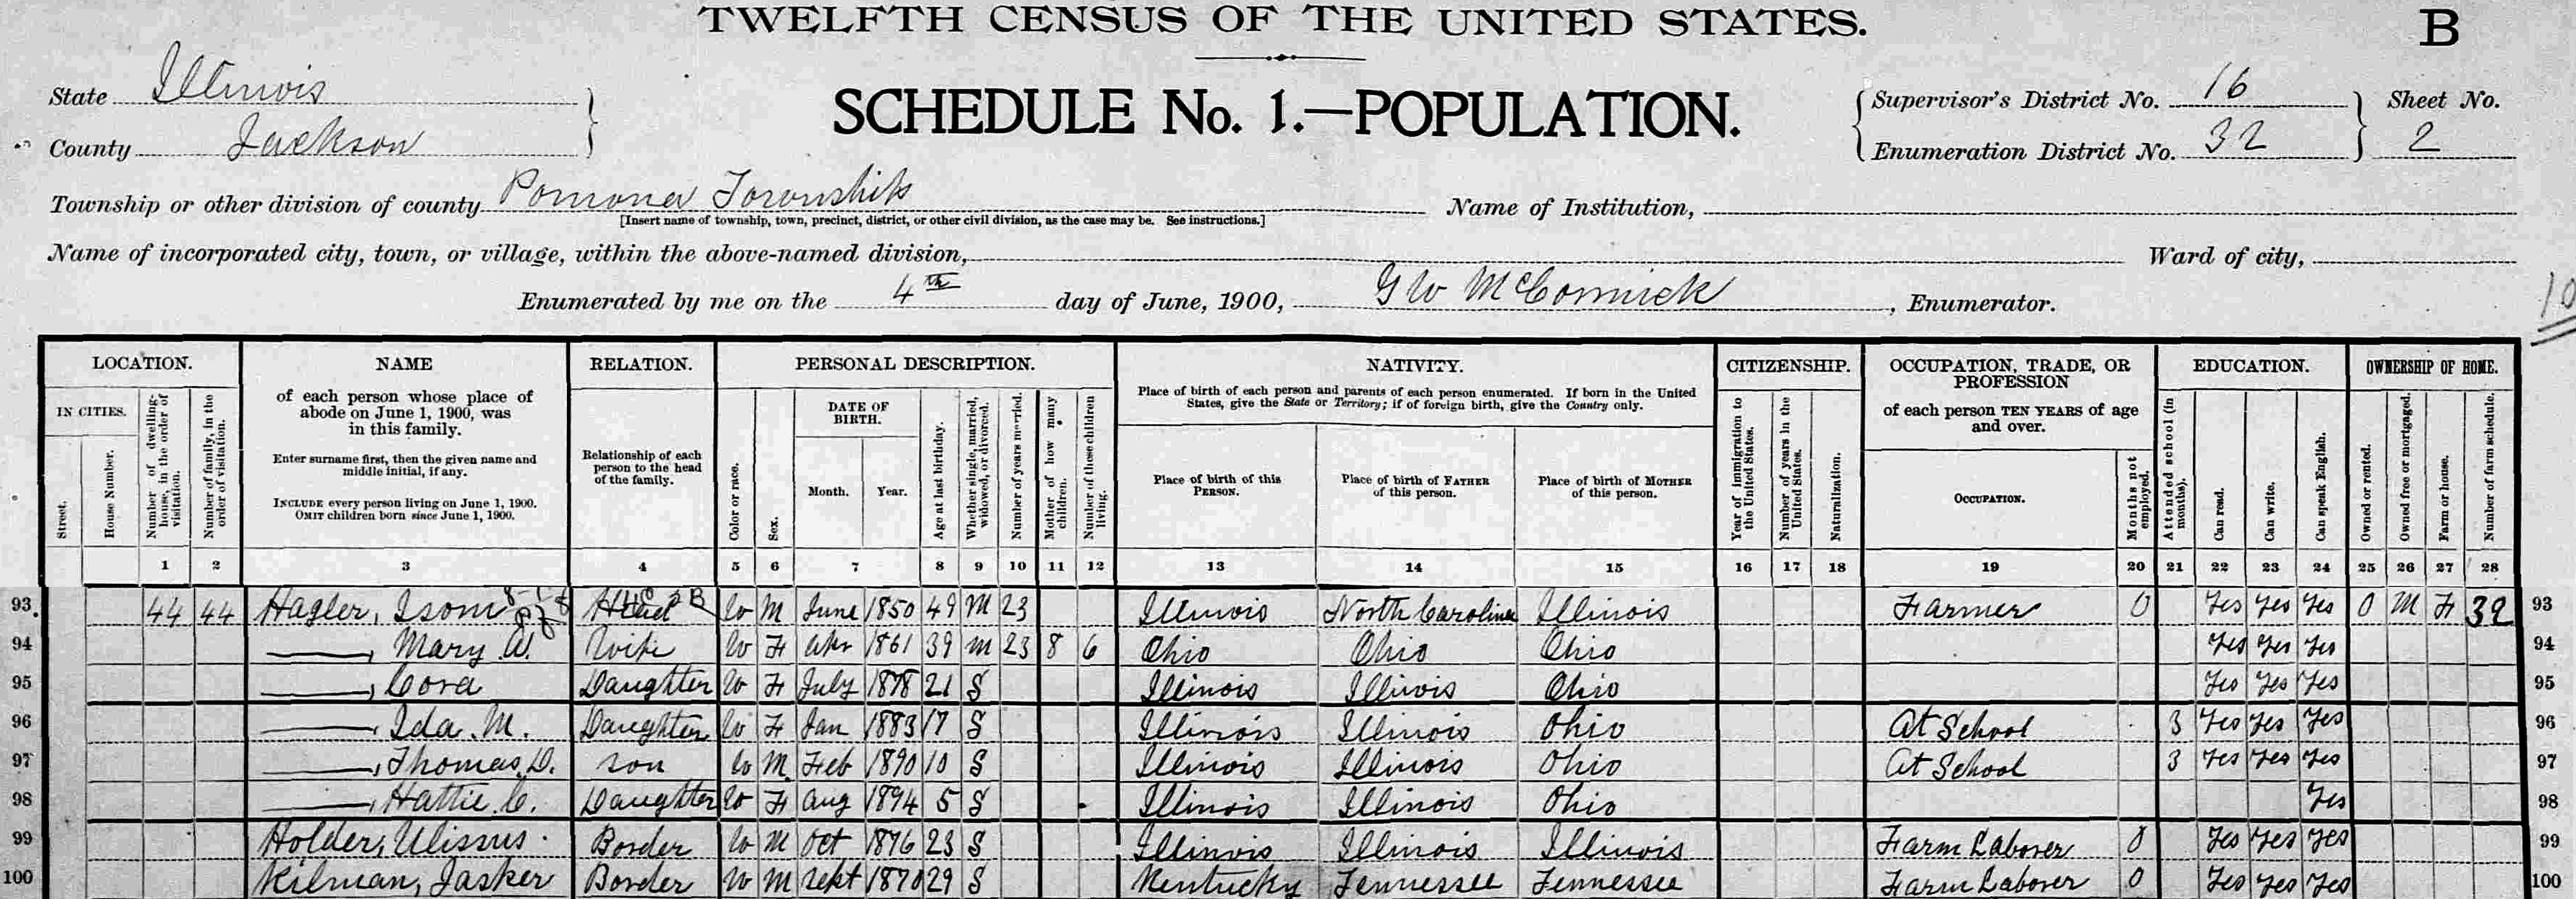 TWELFTH CENSUS OF THE UNITED STATES.
B
State Illinois
County Jackson
SCHEDULE No. 1.—POPULATION.
Supervisor's District No. 16
Enumeration District No. 32
Sheet No.
2
Township or other division of county Pomona Township
[Insert name of township, town, precinct, district, or other civil division, as the case may be. See instructions.]
Name of Institution,
Name of incorporated city, town, or village, within the above-named division,
Ward of city,
Enumerated by me on the 4th day of June, 1900, G W McCormick, Enumerator.
LOCATION.
IN CITIES.
Street.
House Number.
Number of dwelling-house, in the order of visitation.
Number of family, in the order of visitation.
NAME
of each person whose place of
abode on June 1, 1900, was
in this family.
Enter surname first, then the given name and
middle initial, if any.
INCLUDE every person living on June 1, 1900.
OMIT children born since June 1, 1900.
RELATION.
Relationship of each
person to the head
of the family.
PERSONAL DESCRIPTION.
Color or race.
Sex.
DATE OF
BIRTH.
Month.
Year.
Age at last birthday.
Whether single, married, widowed, or divorced.
Number of years married.
Mother of how many children.
Number of these children living.
NATIVITY.
Place of birth of each person and parents of each person enumerated. If born in the United
States, give the State or Territory; if of foreign birth, give the Country only.
Place of birth of this
PERSON.
Place of birth of FATHER
of this person.
Place of birth of MOTHER
of this person.
CITIZENSHIP.
Year of immigration to the United States.
Number of years in the United States.
Naturalization.
OCCUPATION, TRADE, OR
PROFESSION
of each person TEN YEARS of age
and over.
OCCUPATION.
Months not employed.
EDUCATION.
Attended school (in months).
Can read.
Can write.
Can speak English.
OWNERSHIP OF HOME.
Owned or rented.
Owned free or mortgaged.
Farm or house.
Number of farm schedule.
1 2 3 4 5 6 7 8 9 10 11 12 13 14 15 16 17 18 19 20 21 22 23 24 25 26 27 28
93 44 44 Hagler, Isom Head W M June 1850 49 M 23 Illinois North Carolina Illinois Farmer 0 Yes Yes Yes O M F 32 93
94 ——, Mary A. Wife W F Apr 1861 39 M 23 8 6 Ohio Ohio Ohio Yes Yes Yes 94
95 ——, Cora Daughter W F July 1878 21 S Illinois Illinois Ohio Yes Yes Yes 95
96 ——, Ida M. Daughter W F Jan 1883 17 S Illinois Illinois Ohio At School 3 Yes Yes Yes 96
97 ——, Thomas D. Son W M Feb 1890 10 S Illinois Illinois Ohio At School 3 Yes Yes Yes 97
98 ——, Hattie C. Daughter W F Aug 1894 5 S Illinois Illinois Ohio Yes 98
99 Holder, Ulissus Border W M Oct 1876 23 S Illinois Illinois Illinois Farm Laborer 0 Yes Yes Yes 99
100 Kilman, Jasker Border W M Sept 1870 29 S Kentucky Tennessee Tennessee Farm Laborer 0 Yes Yes Yes 100